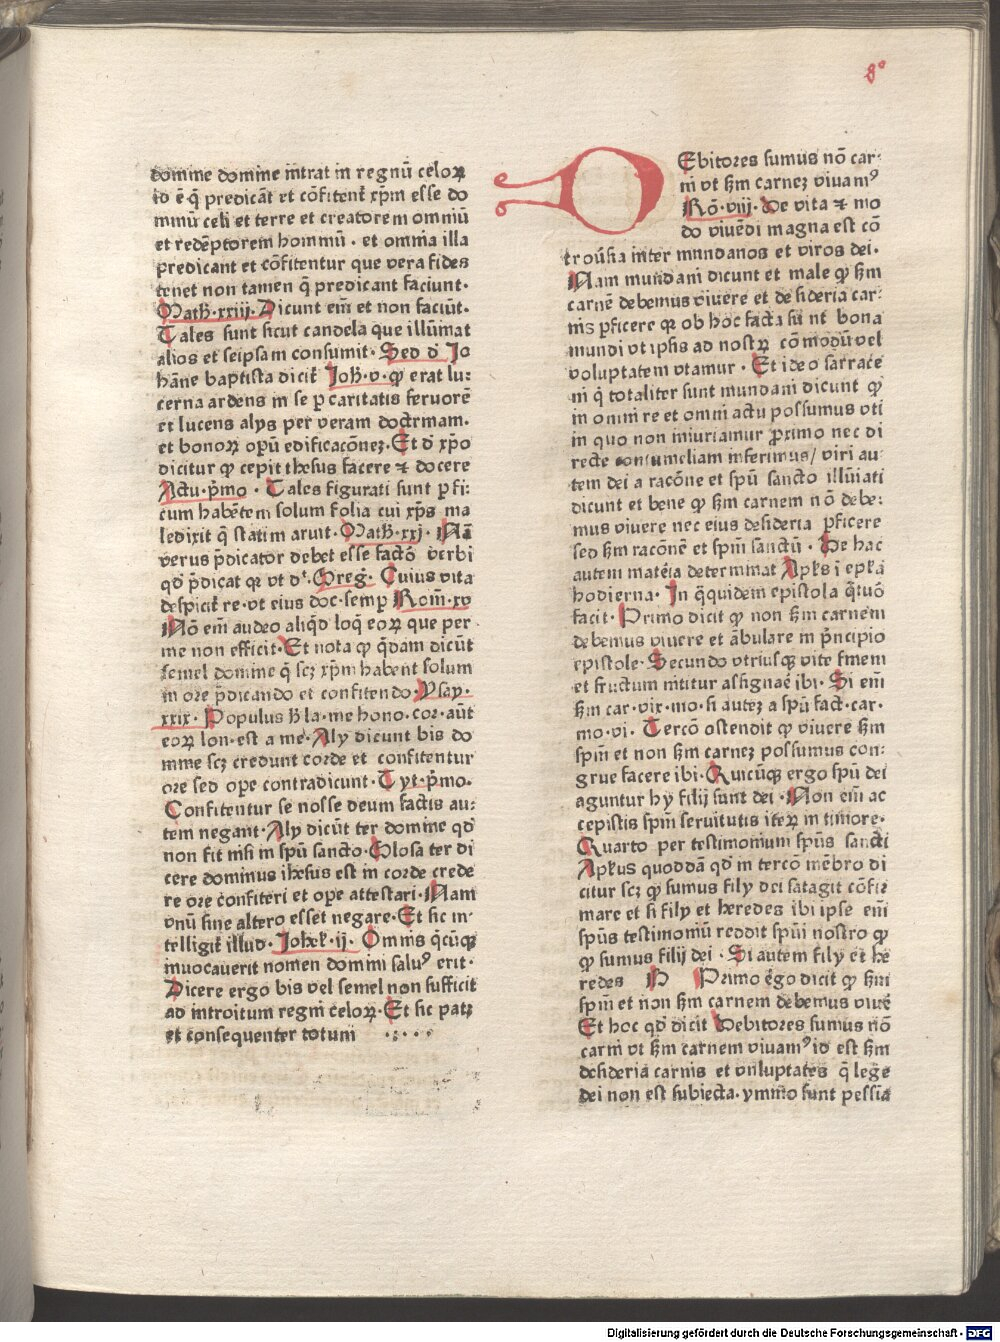 8°
domine domine intrat in regnū celoꝝ
id ē q̇ predicāt et cōfitent᷑ xp̄m esse do
minū celi et terre et creatorem omniū
et redēptorem hominū · et omnia illa
predicant et cōfitentur que vera fides
tenet non tamen q̇ predicant faciunt·
Math̄·xxiij· Dicunt em̄ et non faciūt·
Tales sunt sicut candela que illūinat
alios et seipsam consumit· Sed d̄ Jo
hāne baptista dicit᷑ Joh̄·v· ꝙ erat lu:
cerna ardens in se ꝑ caritatis feruorē
et lucens alys per veram doctrinam·
et bonoꝝ opū edificacōnez· Et d̄ xp̄o
dicitur ꝙ cepit ihesus facere ⁊ docere
Actu·p̄mo · Tales figurati sunt ꝑ fi:
cum habētem solum folia cui xp̄s ma
ledixit q̇ statim aruit· Math̄·xxj· Nā
verus p̄dicator debet esse factō verbi
qd̓ p̄dicat qꝛ vt d᷑· Greḡ· Cuius vita
despicit᷑ re·vt eius doc·semꝑ Rom̄·xv
Nō em̄ audeo aliq̇d loq̇ eoꝝ que per
me non efficit· Et nota ꝙ q̇dam dicūt
semel domine q̇ scꝫ xp̄m habent solum
in ore p̄dicando et confitendo· Ysay·
xxix· Populus h̄ la·me hono·cor·aūt
eoꝝ lon·est a me· Aly dicunt bis do
mine scꝫ credunt corde et confitentur
ore sed oꝑe contradicunt· Tyt·p̄mo·
Confitentur se nosse deum factis au:
tem negant· Aly dicūt ter domine qd̓
non fit nisi in spū sancto· Glosa ter di
cere dominus ihesus est in corde crede
re ore confiteri et oꝑe attestari· Nam
vnū sine altero esset negare· Et sic in:
telligit᷑ illud· Johel·ij· Omnis q̇cūqꝫ
inuocauerit nomen domini saluꝰ erit·
Dicere ergo bis vel semel non sufficit
ad introitum regni celoꝝ· Et sic patꝫ
et consequenter totum
DEbitores sumus nō car:
ni vt ẜm carneꝫ viuamꝰ
Rō·viij· De vita ⁊ mo
do viuēdi magna est cō
trouẜia inter mundanos et viros dei·
Nam mundani dicunt et male ꝙ ẜm
carnē debemus viuere et desideria car:
nis ꝑficere qꝛ ob hoc facta sūnt bona
mundi vt ipsis ad nostꝝ cōmodū vel
voluptatem vtamur · Et ideo sarrace
ni q̇ totaliter sunt mundani dicunt ꝙ
in omni re et omni actu possumus vti
in quo non iniuriamur ꝓximo nec di
recte contumeliam inferimus/ viri au
tem dei a racōne et spū sancto illūiati
dicunt et bene ꝙ ẜm carnem nō debe:
mus viuere nec eius desideria ꝑficere
sed ẜm racōnē et spm̄ sanctū · De hac
autem materia determinat Apl̄s ī epl̄a
hodierna· In q̇quidem epistola q̇tuō
facit· Primo dicit ꝙ non ẜm carnem
debemus viuere et ābulare in p̄ncipio
epistole· Secundo vtriusqꝫ vite finem
et fructum īnitur assignaē ibi· Si em̄
ẜm car·vix·mo·si auteꝫ a spū fact·car·
mo·vi· Tercō ostendit ꝙ viuere ẜm
spm̄ et non ẜm carneꝫ possumus con:
grue facere ibi· Quicūqꝫ ergo spū dei
aguntur hy filij sunt dei· Non em̄ ac
cepistis spm̄ seruitutis iteꝝ in timore·
Quarto per testimonium spūs sancti
Apl̄us quoddā qd̓ in tercō mēbro di
citur scꝫ ꝙ sumus fily dei satagit cōfir
mare et si fily et heredes ibi ipse em̄
spūs testimoniū reddit spūi nostro ꝙ
ꝙ sumus filij dei · Si autem fily et he
redes P Primo ēgo dicit ꝙ ẜm
spm̄ et non ẜm carnem debemus viuē
Et hoc qd̓ dicit Debitores sumus nō
carni vt ẜm carnem viuamꝰ id est ẜm
desideria carnis et voluptates q̇ lege
dei non est subiecta· ymmo sunt pessīa
Digitalisierung gefördert durch die Deutsche Forschungsgemeinschaft · DFG